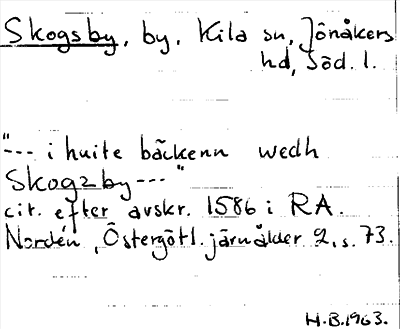 Skogsby, by, Kila sn, Jönåkers
hd, Söd. l.
"--- i huite bäckenn wedh
Skogzby --- "
cit. efter avskr. 1586 i RA.
Nordén, Östergötl. järnålder 2, s. 73.
H.B. 1963.